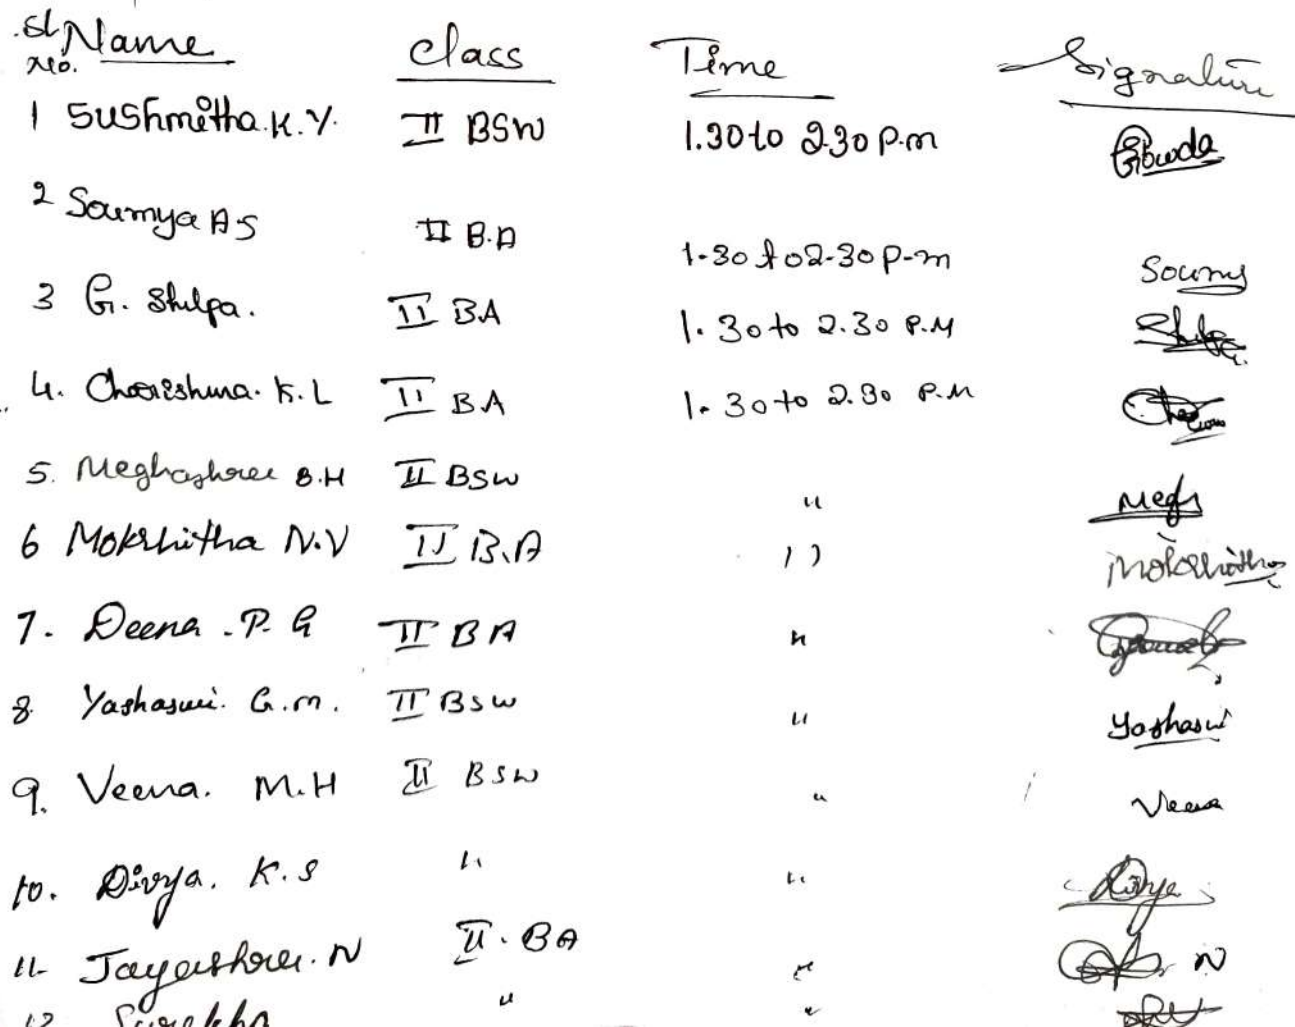 Sl. No. Name Class Time Signature
1 Sushmitha. K. Y. II BSW 1.30 to 2.30 P.m Gowda
2 Soumya A S II B.A 1.30 to 2.30 P.m Soumy
3 G. Shilpa. II BA 1.30 to 2.30 P.M
4. K. L II BA 1.30 to 2.30 P.M
5. Meghashree B.H II BSW " Megh
6 Mokshitha N.V II B.A " Mokshitha
7. Deena. P. G II BA "
8. Yashaswi. G.m. II BSW " Yashaswi
9. Veena. M.H II BSW " Veena
10. Divya. K.S " " Divya
11. Jayashree. N II. BA " N
12 Surekha " "